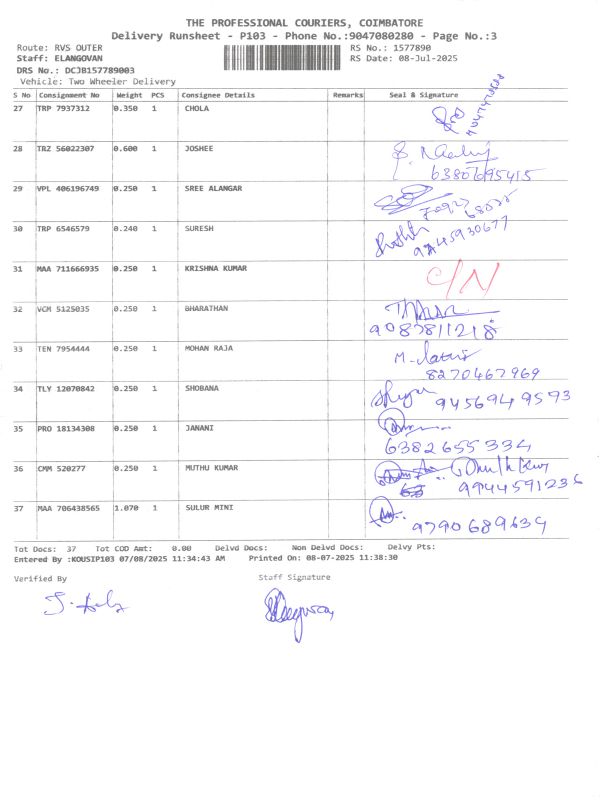 THE PROFESSIONAL COURIERS, COIMBATORE
Delivery Runsheet - P103 - Phone No.:9047080280 - Page No.:3
Route: RVS OUTER RS No.: 1577890
Staff: ELANGOVAN RS Date: 08-Jul-2025
DRS No.: DCJB157789003
Vehicle: Two Wheeler Delivery
S No Consignment No Weight PCS Consignee Details Remarks Seal & Signature
27 TRP 7937312 0.350 1 CHOLA
28 TRZ 56022307 0.600 1 JOSHEE
6380695415
29 VPL 406196749 0.250 1 SREE ALANGAR
30 TRP 6546579 0.240 1 SURESH
9445930677
31 MAA 711666935 0.250 1 KRISHNA KUMAR C/N
32 VCM 5125035 0.250 1 BHARATHAN
9087811218
33 TEN 7954444 0.250 1 MOHAN RAJA
8270467969
34 TLY 12070842 0.250 1 SHOBANA 9456949593
35 PRO 18134308 0.250 1 JANANI
6382655334
36 CMM 520277 0.250 1 MUTHU KUMAR
9944591236
37 MAA 706438565 1.070 1 SULUR MINI
9790689634
Tot Docs: 37 Tot COD Amt: 0.00 Delvd Docs: Non Delvd Docs: Delvy Pts:
Entered By :KOUSIP103 07/08/2025 11:34:43 AM Printed On: 08-07-2025 11:38:30
Verified By Staff Signature